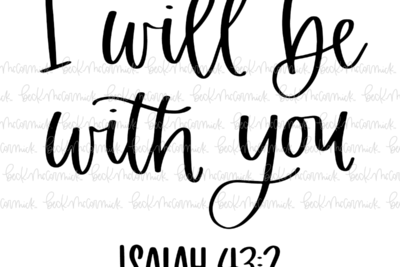 I will be
with you
ISAIAH 43:2